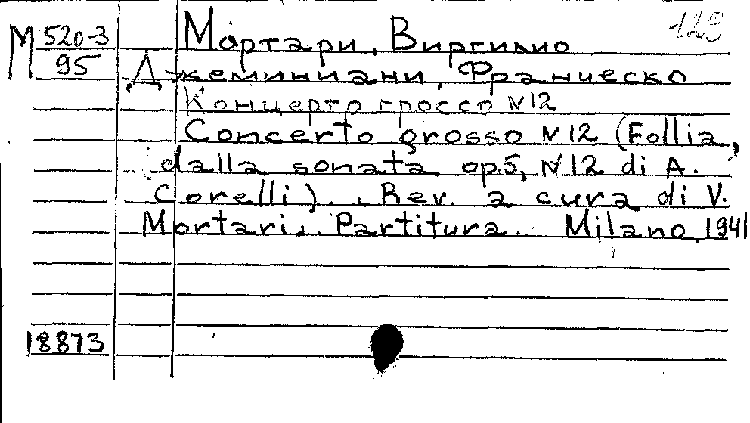 М 520-3 Мортари, Виргилио 123
95 Джеминиани, Франческо
Концерто гроссо N12
Concerto grosso N12 (Follia,
dalla sonata op.5, N12 di A.
Corelli). Rev. a cura di V.
Mortari. Partitura. Milano, 1941
18873